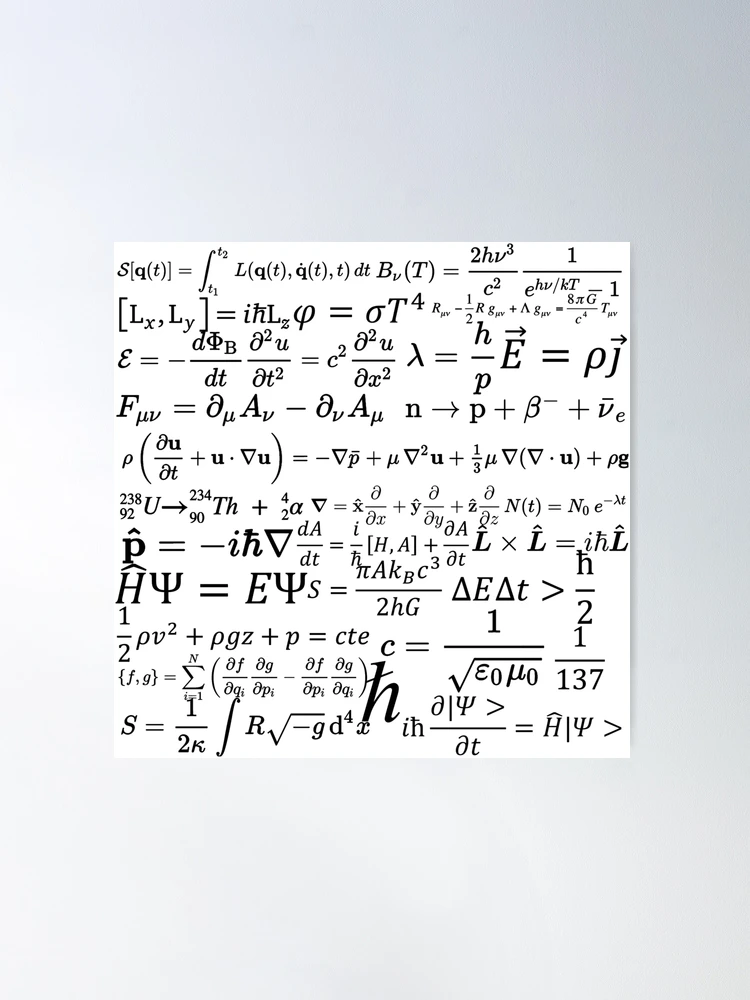 𝒮[𝐪(t)] = ∫_{t₁}^{t₂} L(𝐪(t), 𝐪̇(t), t) dt B_ν(T) = \frac{2hν³}{c²} \frac{1}{e^{hν/kT} − 1}
[L_x, L_y] = iħL_z φ = σT⁴ R_{μν} − \frac{1}{2} R g_{μν} + Λ g_{μν} = \frac{8πG}{c⁴} T_{μν}
ℰ = −\frac{dΦ_B}{dt} \frac{∂²u}{∂t²} = c² \frac{∂²u}{∂x²} λ = \frac{h}{p} \vec{E} = ρ\vec{j}
F_{μν} = ∂_μ A_ν − ∂_ν A_μ n → p + β⁻ + ν̄_e
ρ(\frac{∂𝐮}{∂t} + 𝐮 · ∇𝐮) = −∇p̄ + μ ∇²𝐮 + \frac{1}{3} μ ∇(∇ · 𝐮) + ρ𝐠
^{238}_{92}U → ^{234}_{90}Th + ^{4}_{2}α ∇ = x̂ \frac{∂}{∂x} + ŷ \frac{∂}{∂y} + ẑ \frac{∂}{∂z} N(t) = N₀ e^{−λt}
𝐩̂ = −iħ∇ \frac{dA}{dt} = \frac{i}{ħ}[H, A] + \frac{∂A}{∂t} L̂ × L̂ = iħL̂
ĤΨ = EΨ S = \frac{πAk_Bc³}{2hG} ΔEΔt > \frac{ħ}{2}
\frac{1}{2}ρv² + ρgz + p = cte c = \frac{1}{\sqrt{ε₀μ₀}} \frac{1}{137}
{f, g} = ∑_{i=1}^{N} (\frac{∂f}{∂q_i} \frac{∂g}{∂p_i} − \frac{∂f}{∂p_i} \frac{∂g}{∂q_i}) ħ
S = \frac{1}{2κ} ∫ R\sqrt{−g} d⁴x iħ \frac{∂|Ψ >}{∂t} = Ĥ|Ψ >